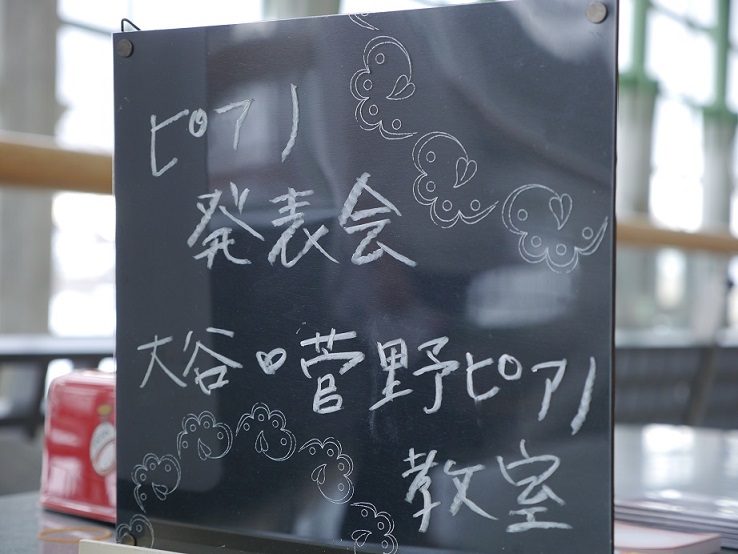 ピアノ
発表会
大谷♡菅野ピアノ
教室